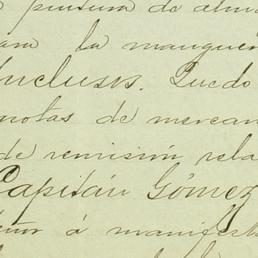 pintura de alm
ara la manguer
Inclusis. Quedo
notas de mercan
de remisión rela
Capitán Gómez
á manifest